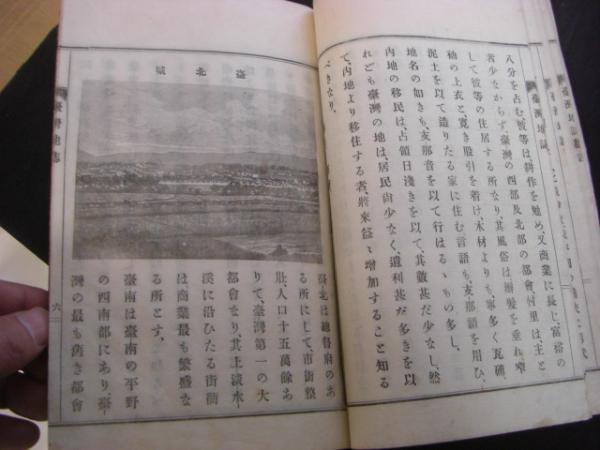 八分を占む、彼等は、耕作を始め、又商業に長じ、富裕の
者少なからず、臺灣の西部及北部の都會村里は、主と
して彼等の住居する所なり、其風俗は、辮髮を垂れ、窄
袖の上衣と、寬き股引を着け、木材よりも、寧多く瓦磚、
泥土を以て造りたる家に住む、言語も、支那語を用ひ、
地名の如きも、支那音を以て行はるゝもの多し、
內地の移民は、占領日淺きを以て、其數甚だ少なし、然
れども臺灣の地は、居民尙少なく、遺利甚だ多きを以
て、內地より移住する者、將來益〻增加すること知る
べきなり、
臺北城
臺北は總督府のあ
る所にして、市街整
壯、人口十五萬餘あ
りて、臺灣第一の大
都會なり、其上淡水
溪に沿ひたる街衢
は、商業最も繁盛な
る所とす、
臺南は臺南の平野
の西南部にあり、臺
灣の最も舊き都會
臺灣地誌
六